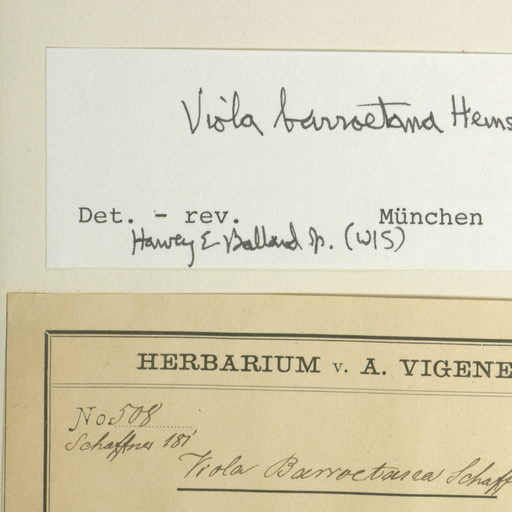 Viola barroetana Hems
Det. - rev. München
Harvey E Ballard Jr. (WIS)
HERBARIUM v. A. VIGENE
No. 508
Schaffner 187
Viola Barroetana Schaff